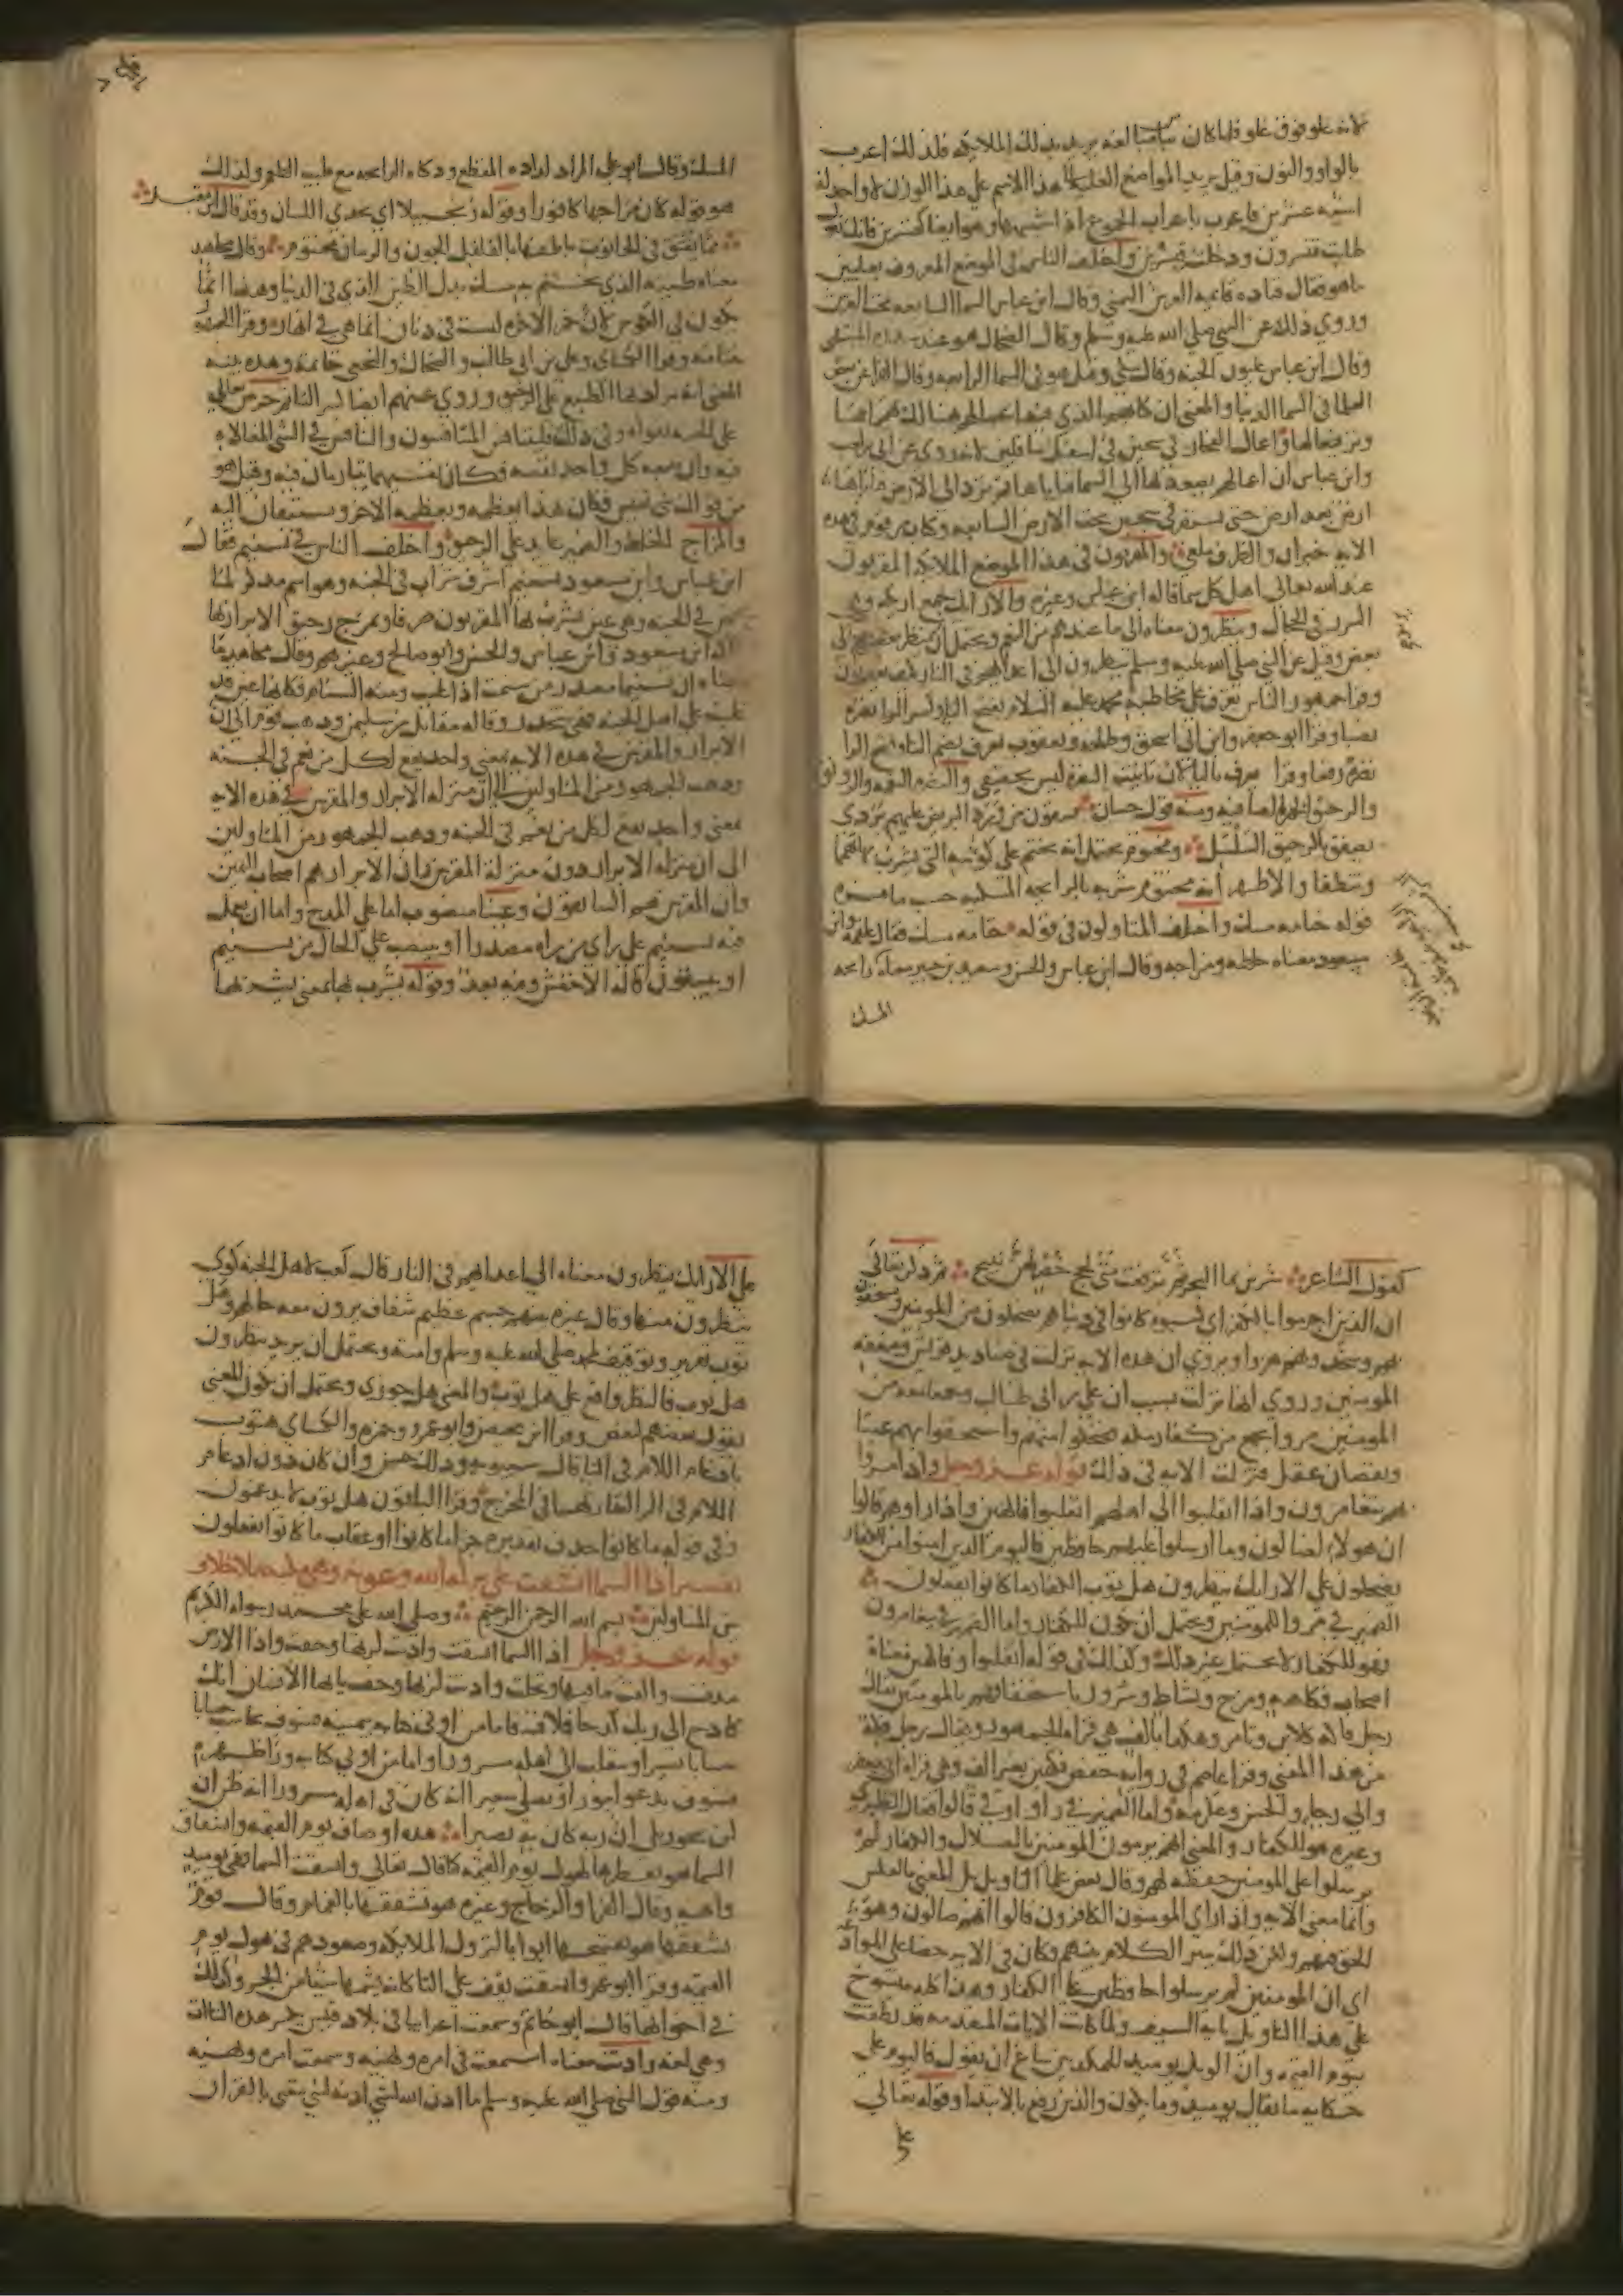 لانه علو فوق علو فلما كان
بالواو والنون وقيل يريد المواضع العلية لان هذا الاسم على هذا الوزن لا واحد له
طابت قنسرون ودخلت قنسرين واختلف الناس في الموضع المعروف بعليين
ما هو فقال قتادة قائمة العرش اليمنى وقال ابن عباس السما السابعة تحت العرش
وروي ذلك عن النبي صلى الله عليه وسلم وقال الضحاك هو عند سدرة المنتهى
وقال ابن عباس عليون الجنة وقال مكي وقيل هو في السما الرابعة وقال الفرا عن بعض
العلما في السما الدنيا والمعنى ان كتابهم الذي فيه اعمالهم هنالك
وابن عباس ان اعمالهم يصعد بها الى السما فتاباها ثم ترد الى الارض فتاباها
ارض بعد ارض حتى تستقر في سجين تحت الارض السابعة وكتاب مرقوم في هذه
الاية خبر ان والظرف ملغى والمقربون في هذا الموضع الملائكة المقربون
عند الله تعالى اهل كل سما قاله ابن عباس وغيره والارائك جمع اريكة وهي
السرر في الحجال وينظرون معناه الى ما عندهم من النعيم ويحتمل ان ينظر بعضهم الى
بعض وقيل عن النبي صلى الله عليه وسلم ينظرون الى اعدائهم في النار كيف يعذبون
وقرا جمهور الناس تعرف على مخاطبة محمد عليه السلام بفتح التا وكسر الرا نضرة
نصبا وقرا ابو جعفر وابن ابي اسحق وطلحة ويعقوب تعرف بضم التا وفتح الرا
نضرة رفعا وقرا يعرف باليا لان تانيث النضرة ليس بحقيقي والنضرة النعمة والرونق
والرحيق الخمر الصافية ومنه قول حسان يسقون من ورد البريص عليهم بردى
يصفق بالرحيق السلسل ومختوم يحتمل انه يختم على كؤوسه التي يشرب بها تهمما
وتنظفا والاظهر انه مختوم شربه بالرائحة المسكية حسب ما فسره
قوله ختامه مسك واختلف المتاولون في قوله ختامه مسك فقال علقمة وابن
مسعود معناه خلطه ومزاجه وقال ابن عباس والحسن وسعيد بن جبير معناه رائحة
المسك
المسك وقال ابو علي المراد لذاذة المقطع وذكاء الرائحة مع طيب الطعم وكذلك
هو قوله كان مزاجها كافورا وقوله زنجبيلا اي يحذي اللسان وقد قال ابن مقبل
مما يفتق في الحانوت باطنها بالفلفل الجون والرمان مختوم وقال مجاهد
معناه طينه الذي يختم به مسك بدل الطين الذي في الدنيا وهذا انما
يكون في الكؤوس لان خمر الاخرة ليست في دنان انما هي في انهار وقرا الجمهور
ختامه وقرا الكسائي وعلي بن ابي طالب والضحاك والنخعي خاتمه وهذه بينة
المعنى انه يراد بها الطبع على الرحيق وروي عنهم ايضا كسر التا ثم حرض تعالى
على الجنة بقوله وفي ذلك فليتنافس المتنافسون والتنافس في الشي المغالاة
فيه وان يتبعه كل واحد نفسه فكان نفسيهما يتباريان فيه وقيل هو
من قولك شي نفيس فكان هذا يعظمه ويعظمه الاخر ويستبقان اليه
والمزاج الخلط والضمير عايد على الرحيق واختلف الناس في تسنيم فقال
ابن عباس وابن مسعود تسنيم اشرف شراب في الجنة وهو اسم مذكر لما
عين في الجنة وهي عين يشرب بها المقربون صرفا وتمزج رحيق الابرار بها
قاله ابن مسعود وابن عباس والحسن وابو صالح وغيرهم وقال مجاهد ما
معناه ان تسنيما مصدر من سنمت اذا علوت ومنه السنام فكانها عين قد
عليت على اهل الجنة فهي تنحدر وقاله مقاتل بن سليمان وذهب قوم الى ان
الابرار والمقربين في هذه الاية بمعنى واحد يقع لكل من نعم في الجنة
وذهب الجمهور من المتاولين الى ان منزلة الابرار والمقربين في هذه الاية
بمعنى واحد يقع لكل من نعم في الجنة وذهب الجمهور من المتاولين
الى ان منزلة الابرار دون منزلة المقربين وان الابرار هم اصحاب اليمين
وان المقربين هم السابقون وعينا منصوب اما على المدح واما ان يعمل
فيه تسنيم على راي من يراه مصدرا او ينتصب على الحال من تسنيم
او يسقون قاله الاخفش وفيه بعد وقوله يشرب بها بمعنى يشربها
كقول الشاعر شربن بماء البحر ثم ترفعت متى لجج خضر لهن نئيج ثم ذكر تعالى
ان الذين اجرموا بالكفر اي كسبوه كانوا في دنياهم يضحكون من المومنين ويستخفون
بهم ويتخذونهم هزوا ويروى ان هذه الاية نزلت في صناديد قريش وضعفة
المومنين وروي انها نزلت بسبب ان علي بن ابي طالب وجماعة من
المومنين مروا بجمع من كفار مكة فضحكوا منهم واستخفوا بهم عبثا
ونقصان عقل فنزلت الاية في ذلك قوله عز وجل واذا مروا
بهم يتغامزون واذا انقلبوا الى اهلهم انقلبوا فاكهين واذا راوهم قالوا
ان هولاء لضالون وما ارسلوا عليهم حافظين فاليوم الذين امنوا من الكفار
يضحكون على الارائك ينظرون هل ثوب الكفار ما كانوا يفعلون
الضمير في مروا للمومنين ويحتمل ان يكون للكفار واما الضمير في يتغامزون
فهو للكفار لا يحتمل غير ذلك وكذلك في قوله انقلبوا وفاكهين معناه
اصحاب فكاهة ومزح ونشاط وسرور باستخفافهم بالمومنين يقال
رجل فاكه كلابن وتامر وهكذا بالف هي قراة الجمهور ويقال رجل فكه
من هذا المعنى وقرا عاصم في رواية حفص فكهين بغير الف وهي قراة ابي جعفر
وابي رجا والحسن وعكرمة واما الضمير في راوا وفي قالوا فقال الطبري
وغيره هو للكفار والمعنى انهم يرمون المومنين بالضلال والكفار لم
يرسلوا على المومنين حفظة لهم وقال بعض علماء التاويل بل المعنى بالعكس
وانما معنى الاية واذا راى المومنون الكافرون قالوا انهم ضالون وهو
الحق فيهم ولكن ذلك يثير الكلام بينهم فكان في الاية حضا على الموادعة
اي ان المومنين لم يرسلوا حافظين على الكفار وهذا كله منسوخ
على هذا التاويل باية السيف ولما كانت الايات المتقدمة قد نطقت
بيوم القيمة وان الويل يوميذ للمكذبين ساغ ان يقول فاليوم على
حكاية ما يقال يوميذ وما يكون والذين رفع بالابتدا وقوله تعالى
على
على الارائك ينظرون معناه الى اعدائهم في النار قال كعب لاهل الجنة كوى
ينظرون منها وقال غيره بينهم جسم عظيم شفاف يرون معه حالهم وهل
ثوب تقرير وتوقيف لمحمد صلى الله عليه وسلم وامته ويحتمل ان يريد ينظرون
هل ثوب فالنظر واقع على هل ثوب والمعنى هل جوزي ويحتمل ان يكون المعنى
يقول بعضهم لبعض وقرا ابن محيصن وابو عمرو وحمزة والكسائي هثوب
بادغام اللام في الثا قال سيبويه وذلك حسن وان كان دون ادغام
اللام في الرا لتقاربهما في المخرج وقرا الباقون هل ثوب لا يدغمون
وفي قوله ما كانوا حذف تقديره جزا ما كانوا او عقاب ما كانوا يفعلون
تفسير اذا السما انشقت على بركة الله وعونه وهي مكية بلا خلاف
بين المتاولين بسم الله الرحمن الرحيم وصلى الله على محمد رسوله الكريم
قوله عز وجل اذا السما انشقت واذنت لربها وحقت واذا الارض
مدت والقت ما فيها وتخلت واذنت لربها وحقت يايها الانسان انك
كادح الى ربك كدحا فملاقيه فاما من اوتي كتابه بيمينه فسوف يحاسب حسابا
حسابا يسيرا وينقلب الى اهله مسرورا واما من اوتي كتابه وراظهره
فسوف يدعو ثبورا ويصلى سعيرا انه كان في اهله مسرورا انه ظن ان
لن يحور بلى ان ربه كان به بصيرا هذه اوصاف يوم القيمة وانشقاق
السما هو تفطرها لهول يوم القيمة كما قال تعالى وانشقت السما فهي يوميذ
واهية وقال الفرا والزجاج وغيره هو تشققها بالغمام وقال قوم
تشققها هو تفتحها ابوابا لنزول الملائكة وصعودهم في هول يوم
القيمة وقرا ابو عمرو انشقت يقف على التا كانه يشمها شيا من الجر وكذلك
في اخواتها قال ابو حاتم وسمعت اعرابيا في بلاد قيس يكسر هذه التاات
وهي لغة واذنت معناه استمعت في امره ونهيه وسمعت امره ونهيه
ومنه قول النبي صلى الله عليه وسلم ما اذن الله لشي اذنه لنبي يتغنى بالقران